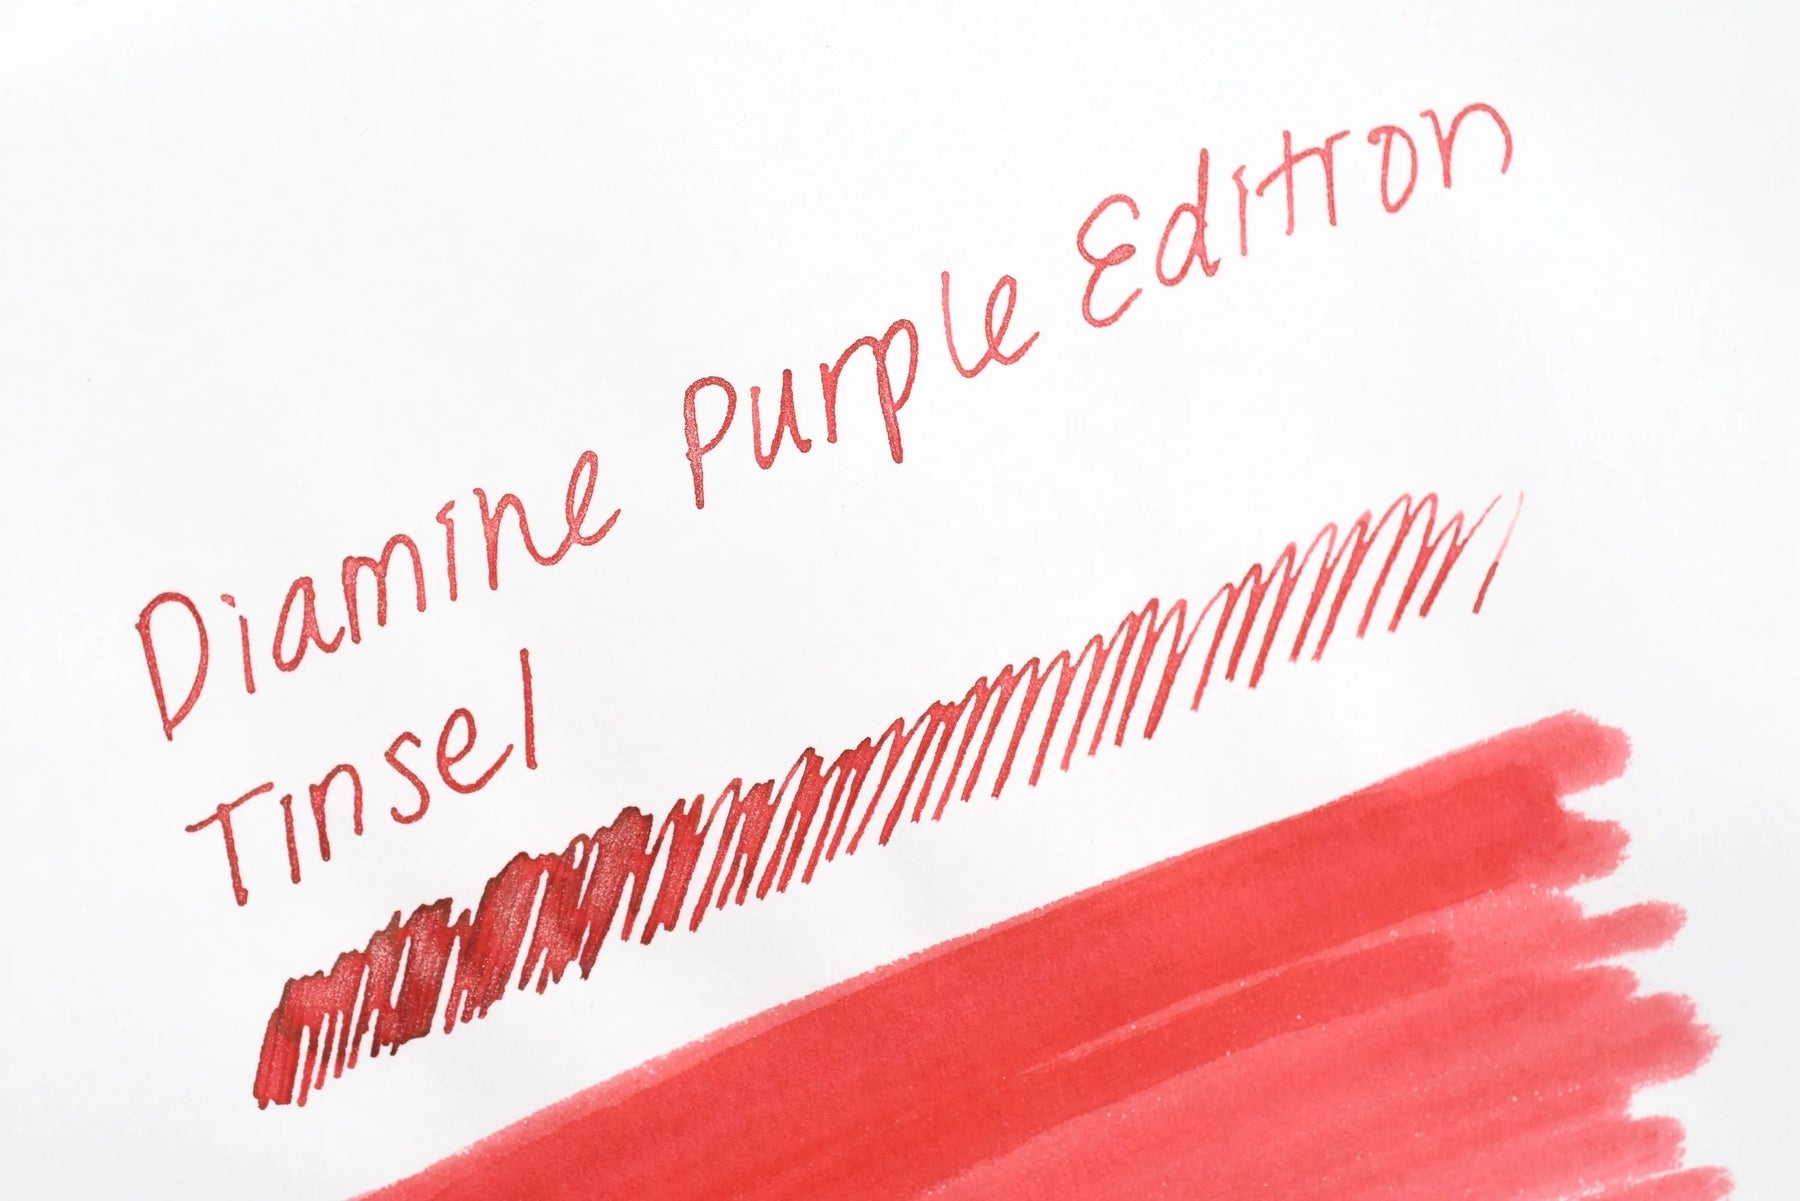 Diamine Purple Edition
Tinsel